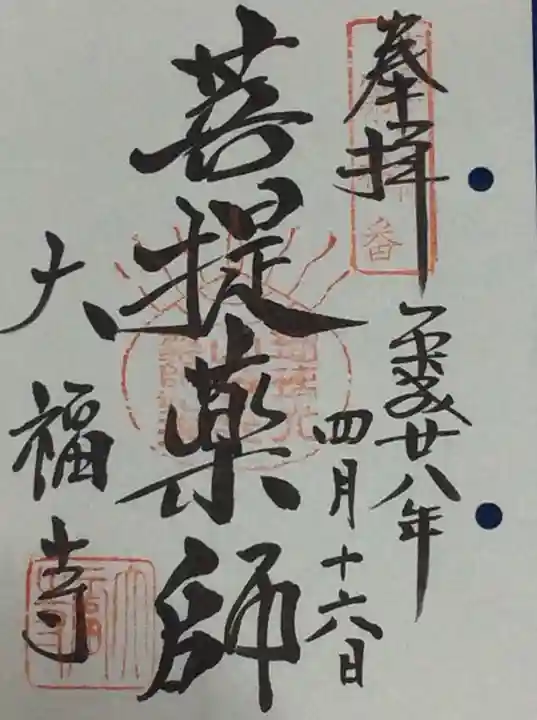 奉拝
平成廿八年
四月十六日
菩提薬師
大福寺
番